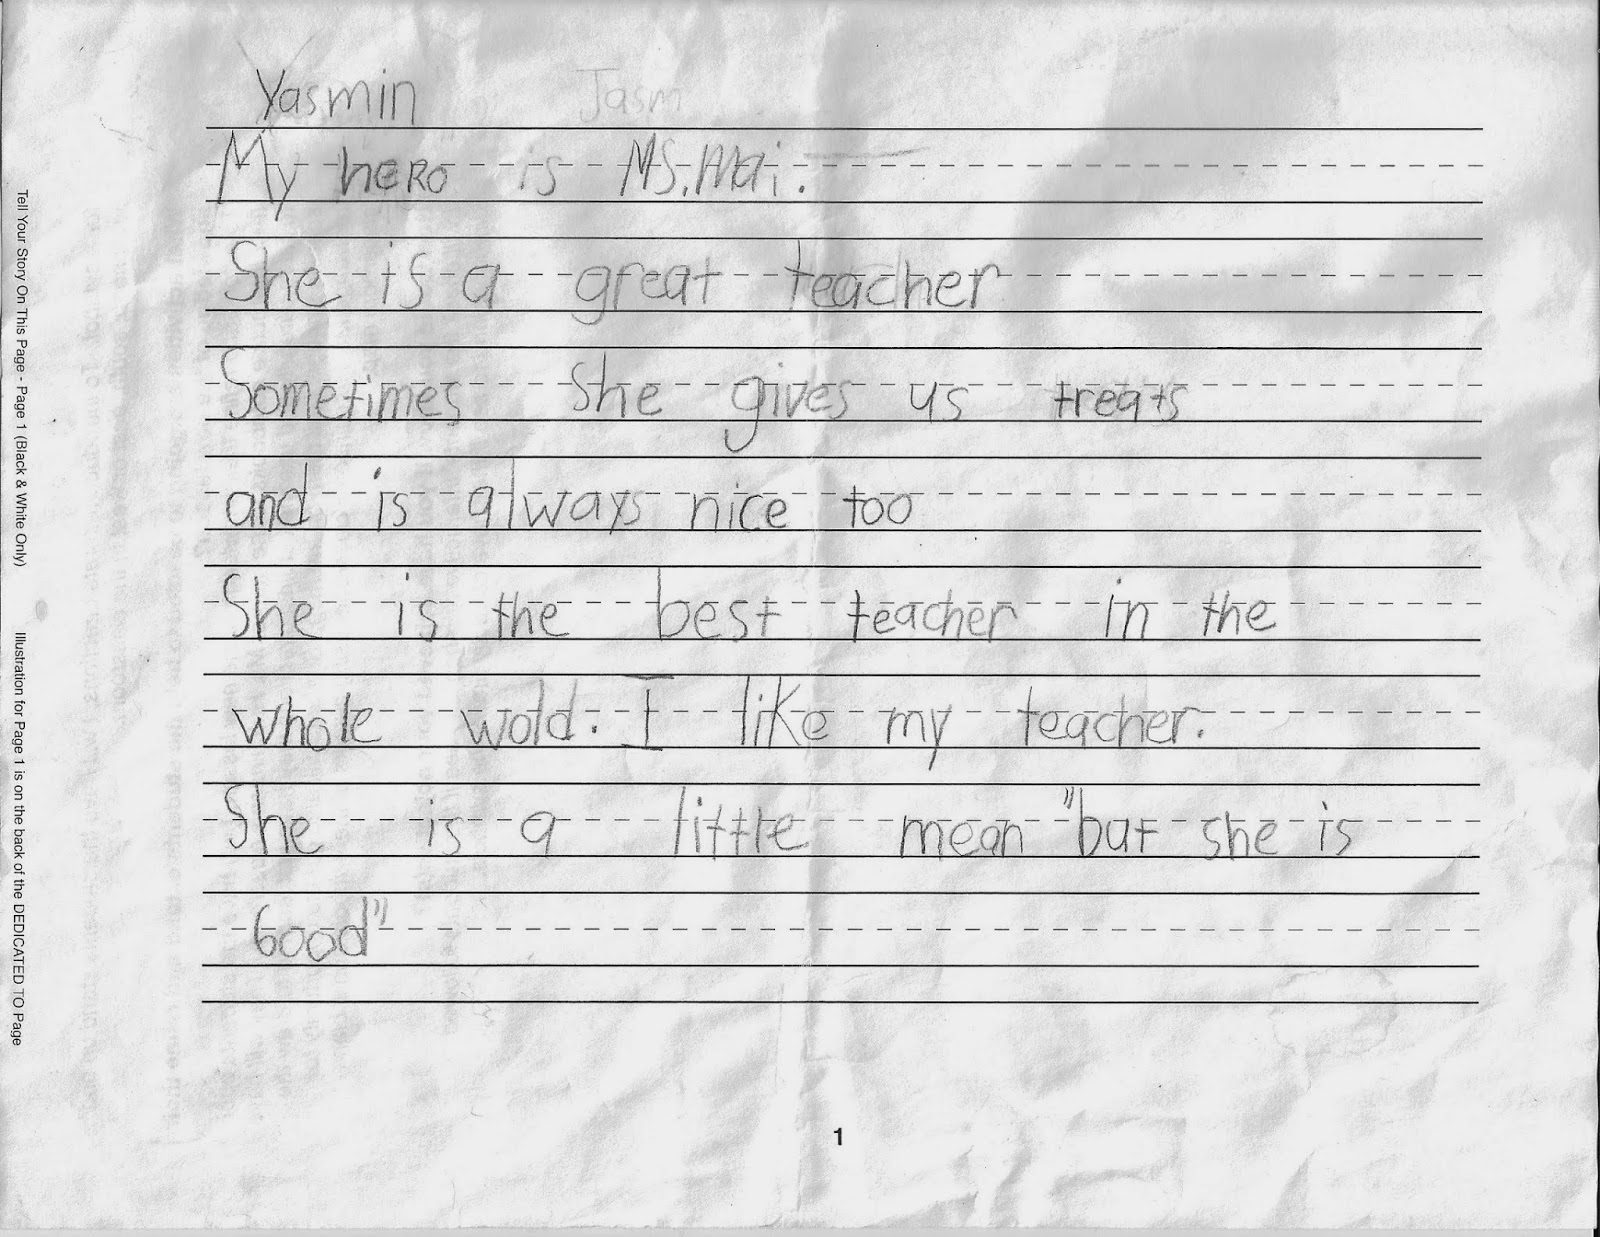 Yasmin Jasm
My heRo is MS. Mai.
She is a great teacher
Sometimes She gives us treats
and is always nice too
She is the best teacher in the
whole wold. I like my teacher.
She is a little mean "but she is
Good"
1
Tell Your Story On This Page - Page 1 (Black & White Only)
Illustration for Page 1 is on the back of the DEDICATED TO Page